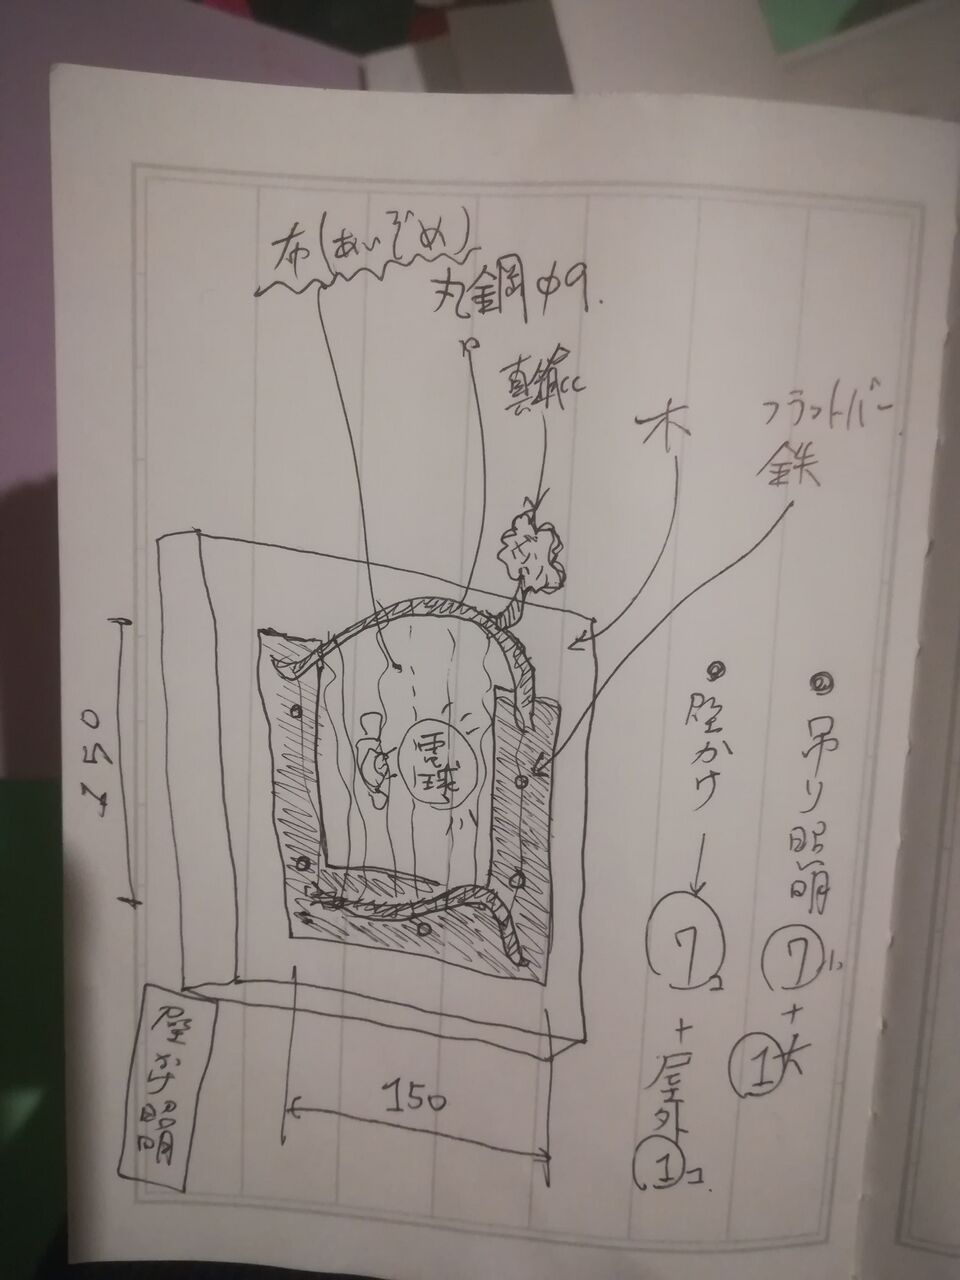 布(あいぞめ)
丸鋼 φ9.
真鍮
木
フラットバー
鉄
電球
150
150
● 吊り照明 ⑦コ + 大 ①
● 壁かけ → ⑦コ + 屋外 ①コ.